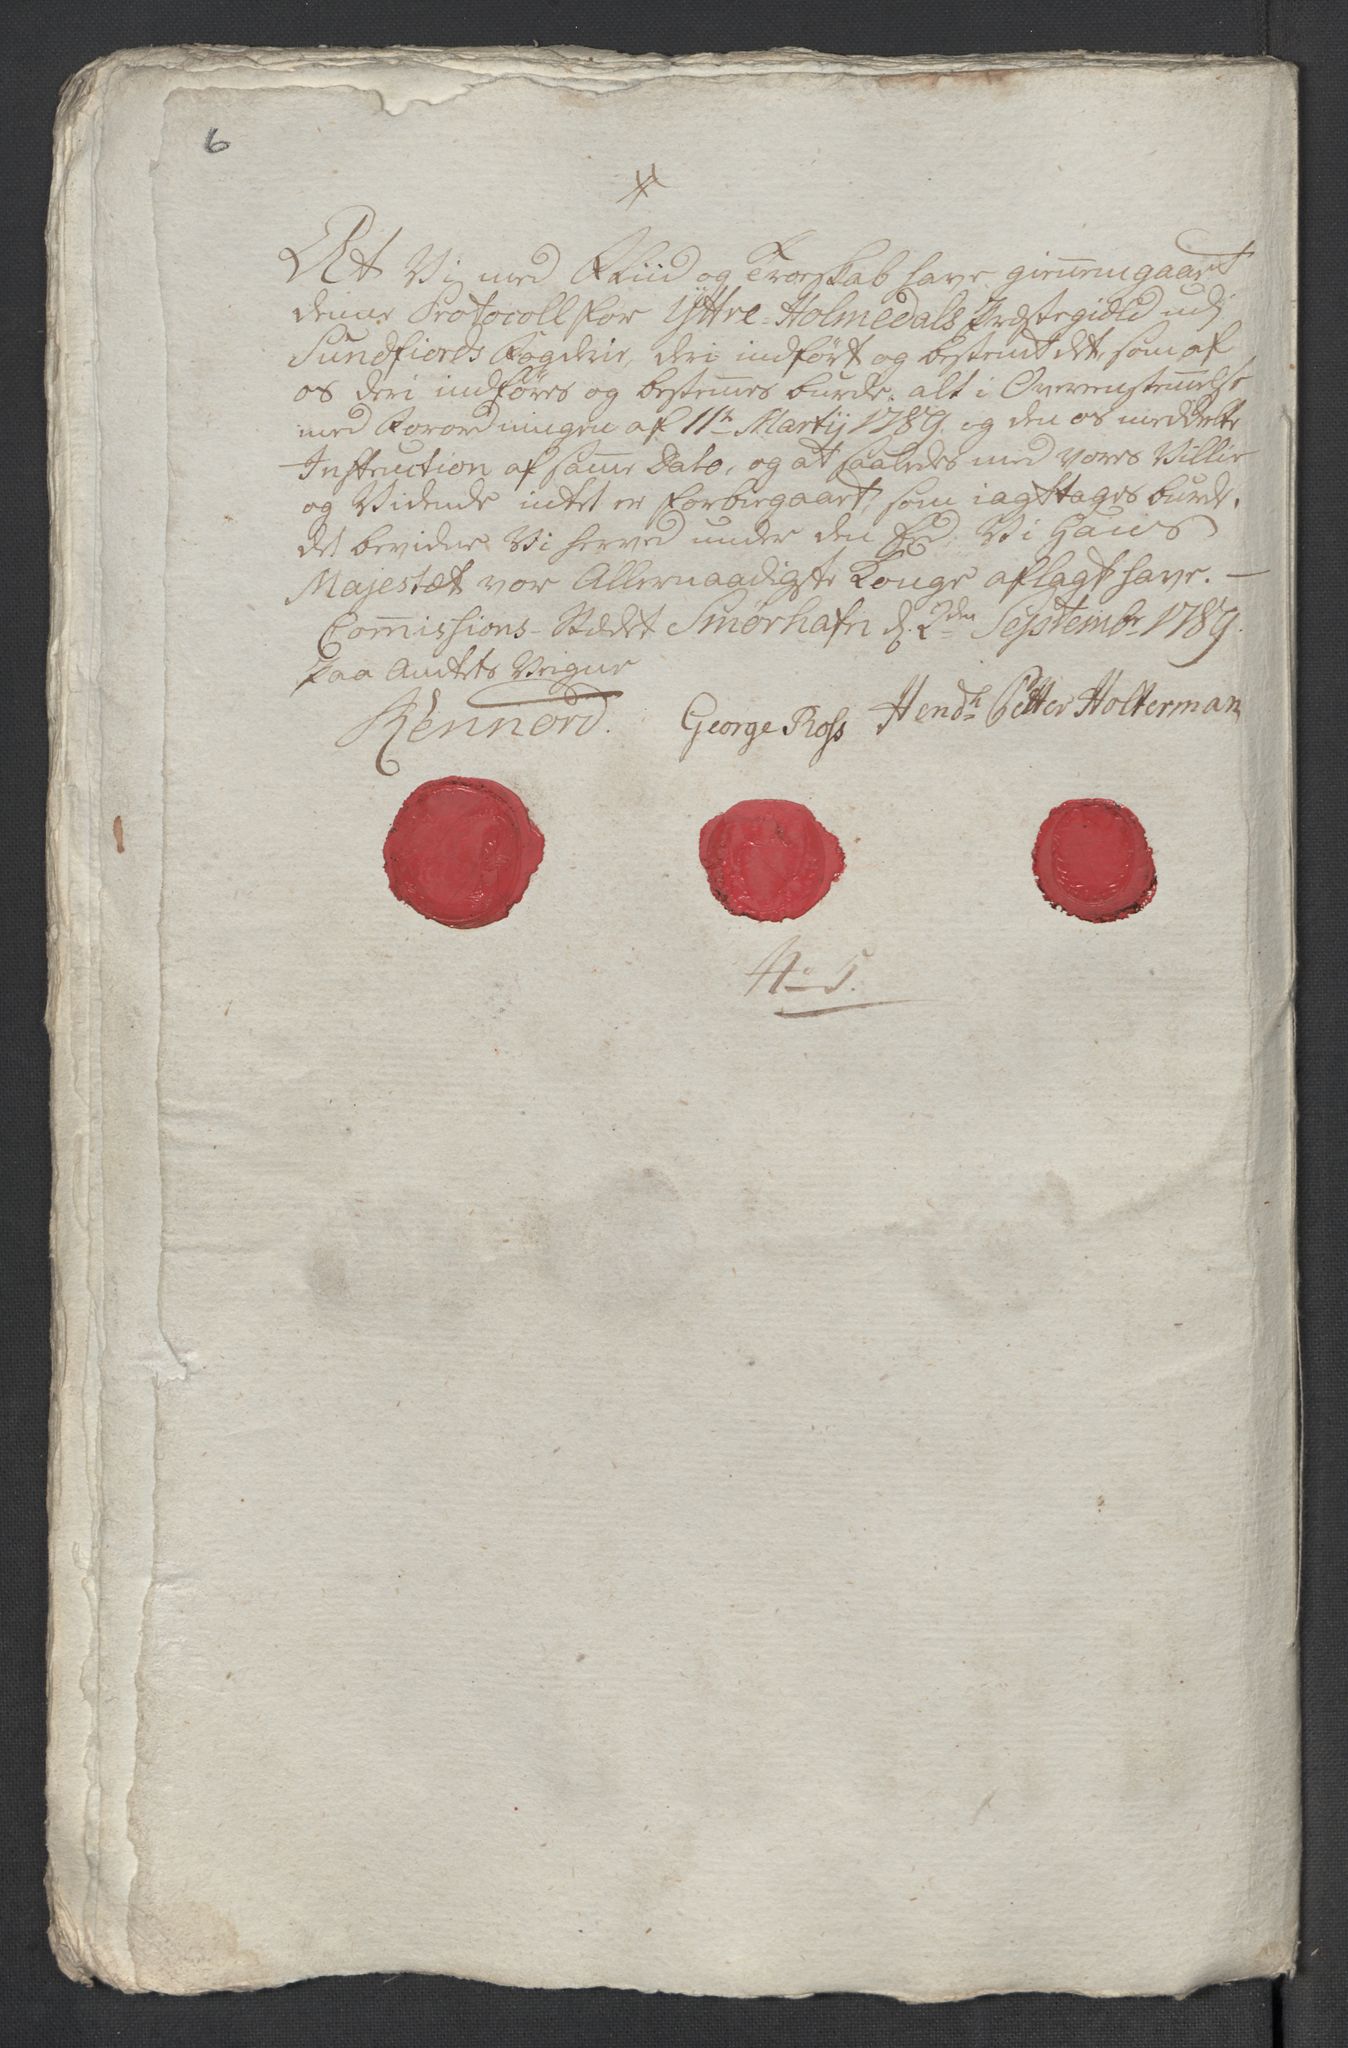 6
At Vi med Fliid og Troeskab have giennemgaaet
denne Protocoll for Ÿttre-Holmedals Præstegield udj
Sundfiords Fogderie, deri indført og bestemt det, som af
os deri indføres og bestemes burde, alt i Overensstemelse
med Forordningen af 11te Martij 1789. og den os meddelte
Instruction af samme Dato, og at saaledes med vores Villie
og Vidende intet er forbiegaaet, som iagttages burde,
det bevidne Vi herved under den Eed, Vi Hans
Majestæt vor Allernaadigste Konge aflagt have. —
Commissions-Stædet Smørhafn d. 2den Septembr 1789.
Paa Amtets Veigne
Rennord. George Ross Hendh Petter Holterman
No 5.